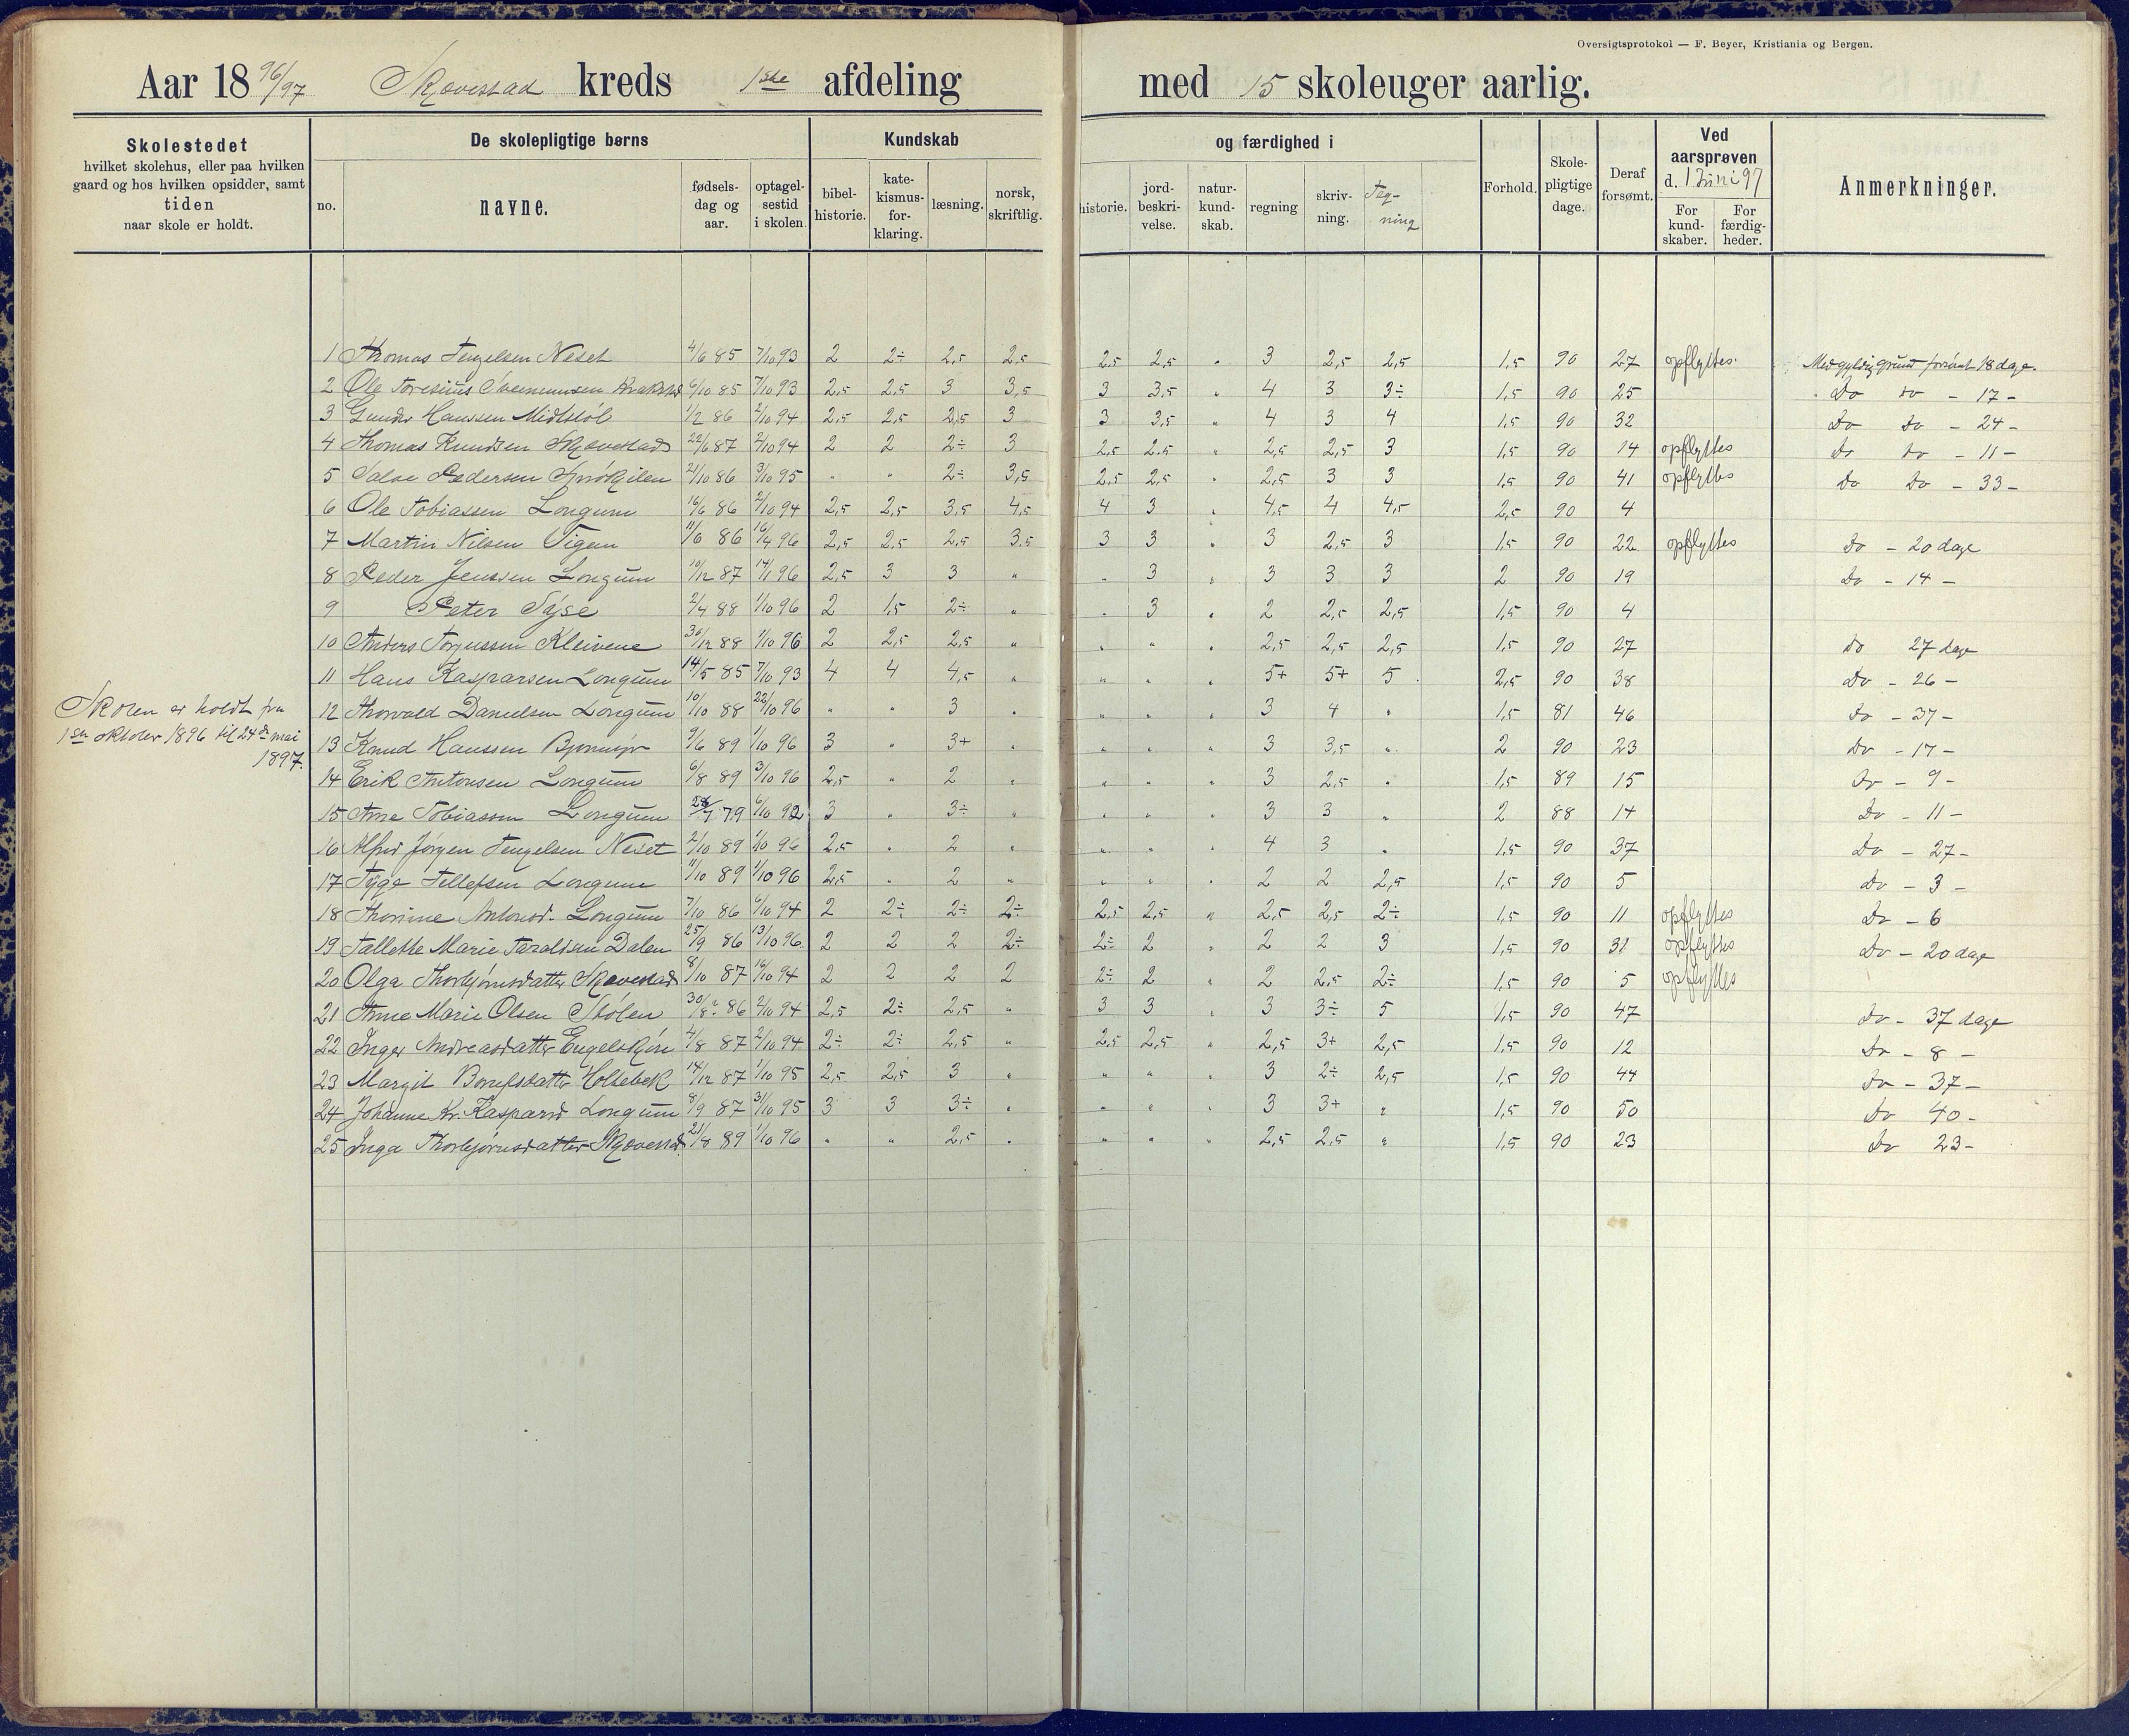 Oversigtsprotokol — F. Beyer, Kristiania og Bergen.
Aar 18 96/97 Skovestad kreds 1ste afdeling med 15 skoleuger aarlig.
Skolestedet
hvilket skolehus, eller paa hvilken
gaard og hos hvilken opsidder, samt
tiden
naar skole er holdt.
De skolepligtige børns
no.
navne.
fødsels-
dag og
aar.
optagel-
sestid
i skolen.
Kundskab
bibel-
historie.
kate-
kismus-
for-
klaring.
læsning.
norsk,
skriftlig.
og færdighed i
historie.
jord-
beskri-
velse.
natur-
kund-
skab.
regning
skriv-
ning.
Teg-
ning
Forhold.
Skole-
pligtige
dage.
Deraf
forsømt.
Ved
aarsprøven
d. 1 Juni 97
For
kund-
skaber.
For
færdig-
heder.
Anmerkninger.
Skolen er holdt fra
1ste oktober 1896 til 24de mai
1897.
1 Thomas Tengelsen Neset 4/6 85 7/10 93 2 2÷ 2,5 2,5 2,5 2,5 " 3 2,5 2,5 1,5 90 27 opflyttes Med gyldig grund forsømt 18 dage.
2 Ole 6/10 85 7/10 93 2,5 2,5 3 3,5 3 3,5 " 4 3 3÷ 1,5 90 25 Do do - 17 -
3 Gunder Hanssen Midtbøl 1/2 86 2/10 94 2,5 2,5 2,5 3 3 3,5 " 4 3 4 1,5 90 32 Do Do - 24 -
4 Thomas Knudsen Skovestad 22/6 87 2/10 94 2 2 2÷ 3 2,5 2,5 " 2,5 2,5 3 1,5 90 14 opflyttes Do Do - 11 -
5 Salve Pedersen 21/10 86 3/10 95 " " 2÷ 3,5 2,5 2,5 " 2,5 3 3 1,5 90 41 opflyttes Do Do - 33 -
6 Ole Tobiassen Longum 16/6 86 2/10 94 2,5 2,5 3,5 4,5 4 3 " 4,5 4 4,5 2,5 90 4
7 Martin Nilsen Vigen 11/6 86 16/4 96 2,5 2,5 2,5 3,5 3 3 " 3 2,5 3 1,5 90 22 opflyttes Do - 20 dage
8 Peder Jenssen Longum 10/12 87 14/1 96 2,5 3 3 " " 3 " 3 3 3 2 90 19 Do - 14 -
9 Peter 2/4 88 1/10 96 2 1,5 2÷ " " 3 " 2 2,5 2,5 1,5 90 4
10 Anders Torjussen Kleivene 30/12 88 1/10 96 2 2,5 2,5 " " " " 2,5 2,5 2,5 1,5 90 27 Do 27 dage
11 Hans Kasparsen Longum 14/5 85 7/10 93 4 4 4,5 " " " " 5+ 5+ 5 2,5 90 38 Do - 26 -
12 Thorvald Danielsen Longum 10/10 88 22/10 96 " " 3 " " " " 3 4 " 1,5 81 46 Do - 37 -
13 Knud Hanssen 9/6 89 1/10 96 3 " 3+ " " " " 3 3,5 " 2 90 23 Do - 17 -
14 Erik Antonsen Longum 6/8 89 3/10 96 2,5 " 2 " " " " 3 2,5 " 1,5 89 15 Do - 9 -
15 Arne Tobiassen Longum 79 6/10 92 3 " 3÷ " " " " 3 3 " 2 88 14 Do - 11 -
16 Alfred Jørgen Tengelsen Neset 2/10 89 1/10 96 2,5 " 2 " " " " 4 3 " 1,5 90 37 Do - 27 -
17 Tyge Tellefsen Longum 11/10 89 1/10 96 2,5 " 2 " " " " 2 2 2,5 1,5 90 5 Do - 3 -
18 Thorine Antonsd. Longum 7/10 86 6/10 94 2 2÷ 2÷ 2÷ 2,5 2,5 " 2,5 2,5 2÷ 1,5 90 11 opflyttes Do - 6
19 Tallette Marie Taraldsen Dalen 25/9 86 13/10 96 2 2 2 2÷ 2÷ 2 " 2 2 3 1,5 90 31 opflyttes Do - 20 dage
20 Olga Thorbjørnsdatter Skovestad 8/10 87 16/10 94 2 2 2 2 2÷ 2 " 2 2,5 2÷ 1,5 90 5 opflyttes
21 Anne Marie Olsen Stølen 30/8 86 2/10 94 2,5 2÷ 2,5 " 3 3 " 3 3÷ 5 1,5 90 47 Do - 37 dage
22 Inger Andreasdatter 4/8 87 2/10 94 2÷ 2÷ 2,5 " 2,5 2,5 " 2,5 3+ 2,5 1,5 90 12 Do - 8 -
23 Margit Holtebek 14/12 87 1/10 95 2,5 2,5 3 " " " " 3 2÷ 2,5 1,5 90 44 Do - 37 -
24 Johanne Kr. Kasparsd Longum 8/9 87 31/10 95 3 3 3÷ " " " " 3 3+ " 1,5 90 50 Do 40 -
25 Inga Thorbjørnsdatter Skovestad 21/8 89 1/10 96 " " 2,5 " " " " 2,5 2,5 " 1,5 90 23 Do 23 -